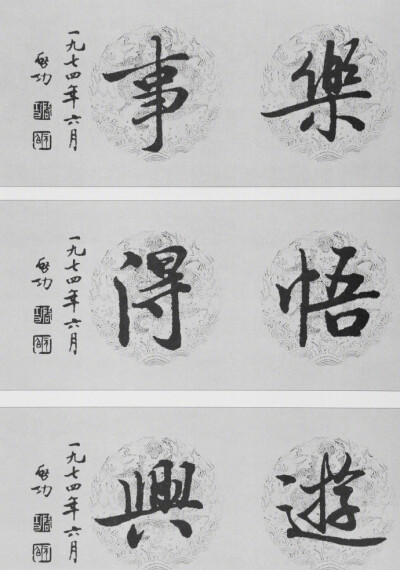 樂事
一九七四年六月
啟功
悟得
一九七四年六月
啟功
遊興
一九七四年六月
啟功